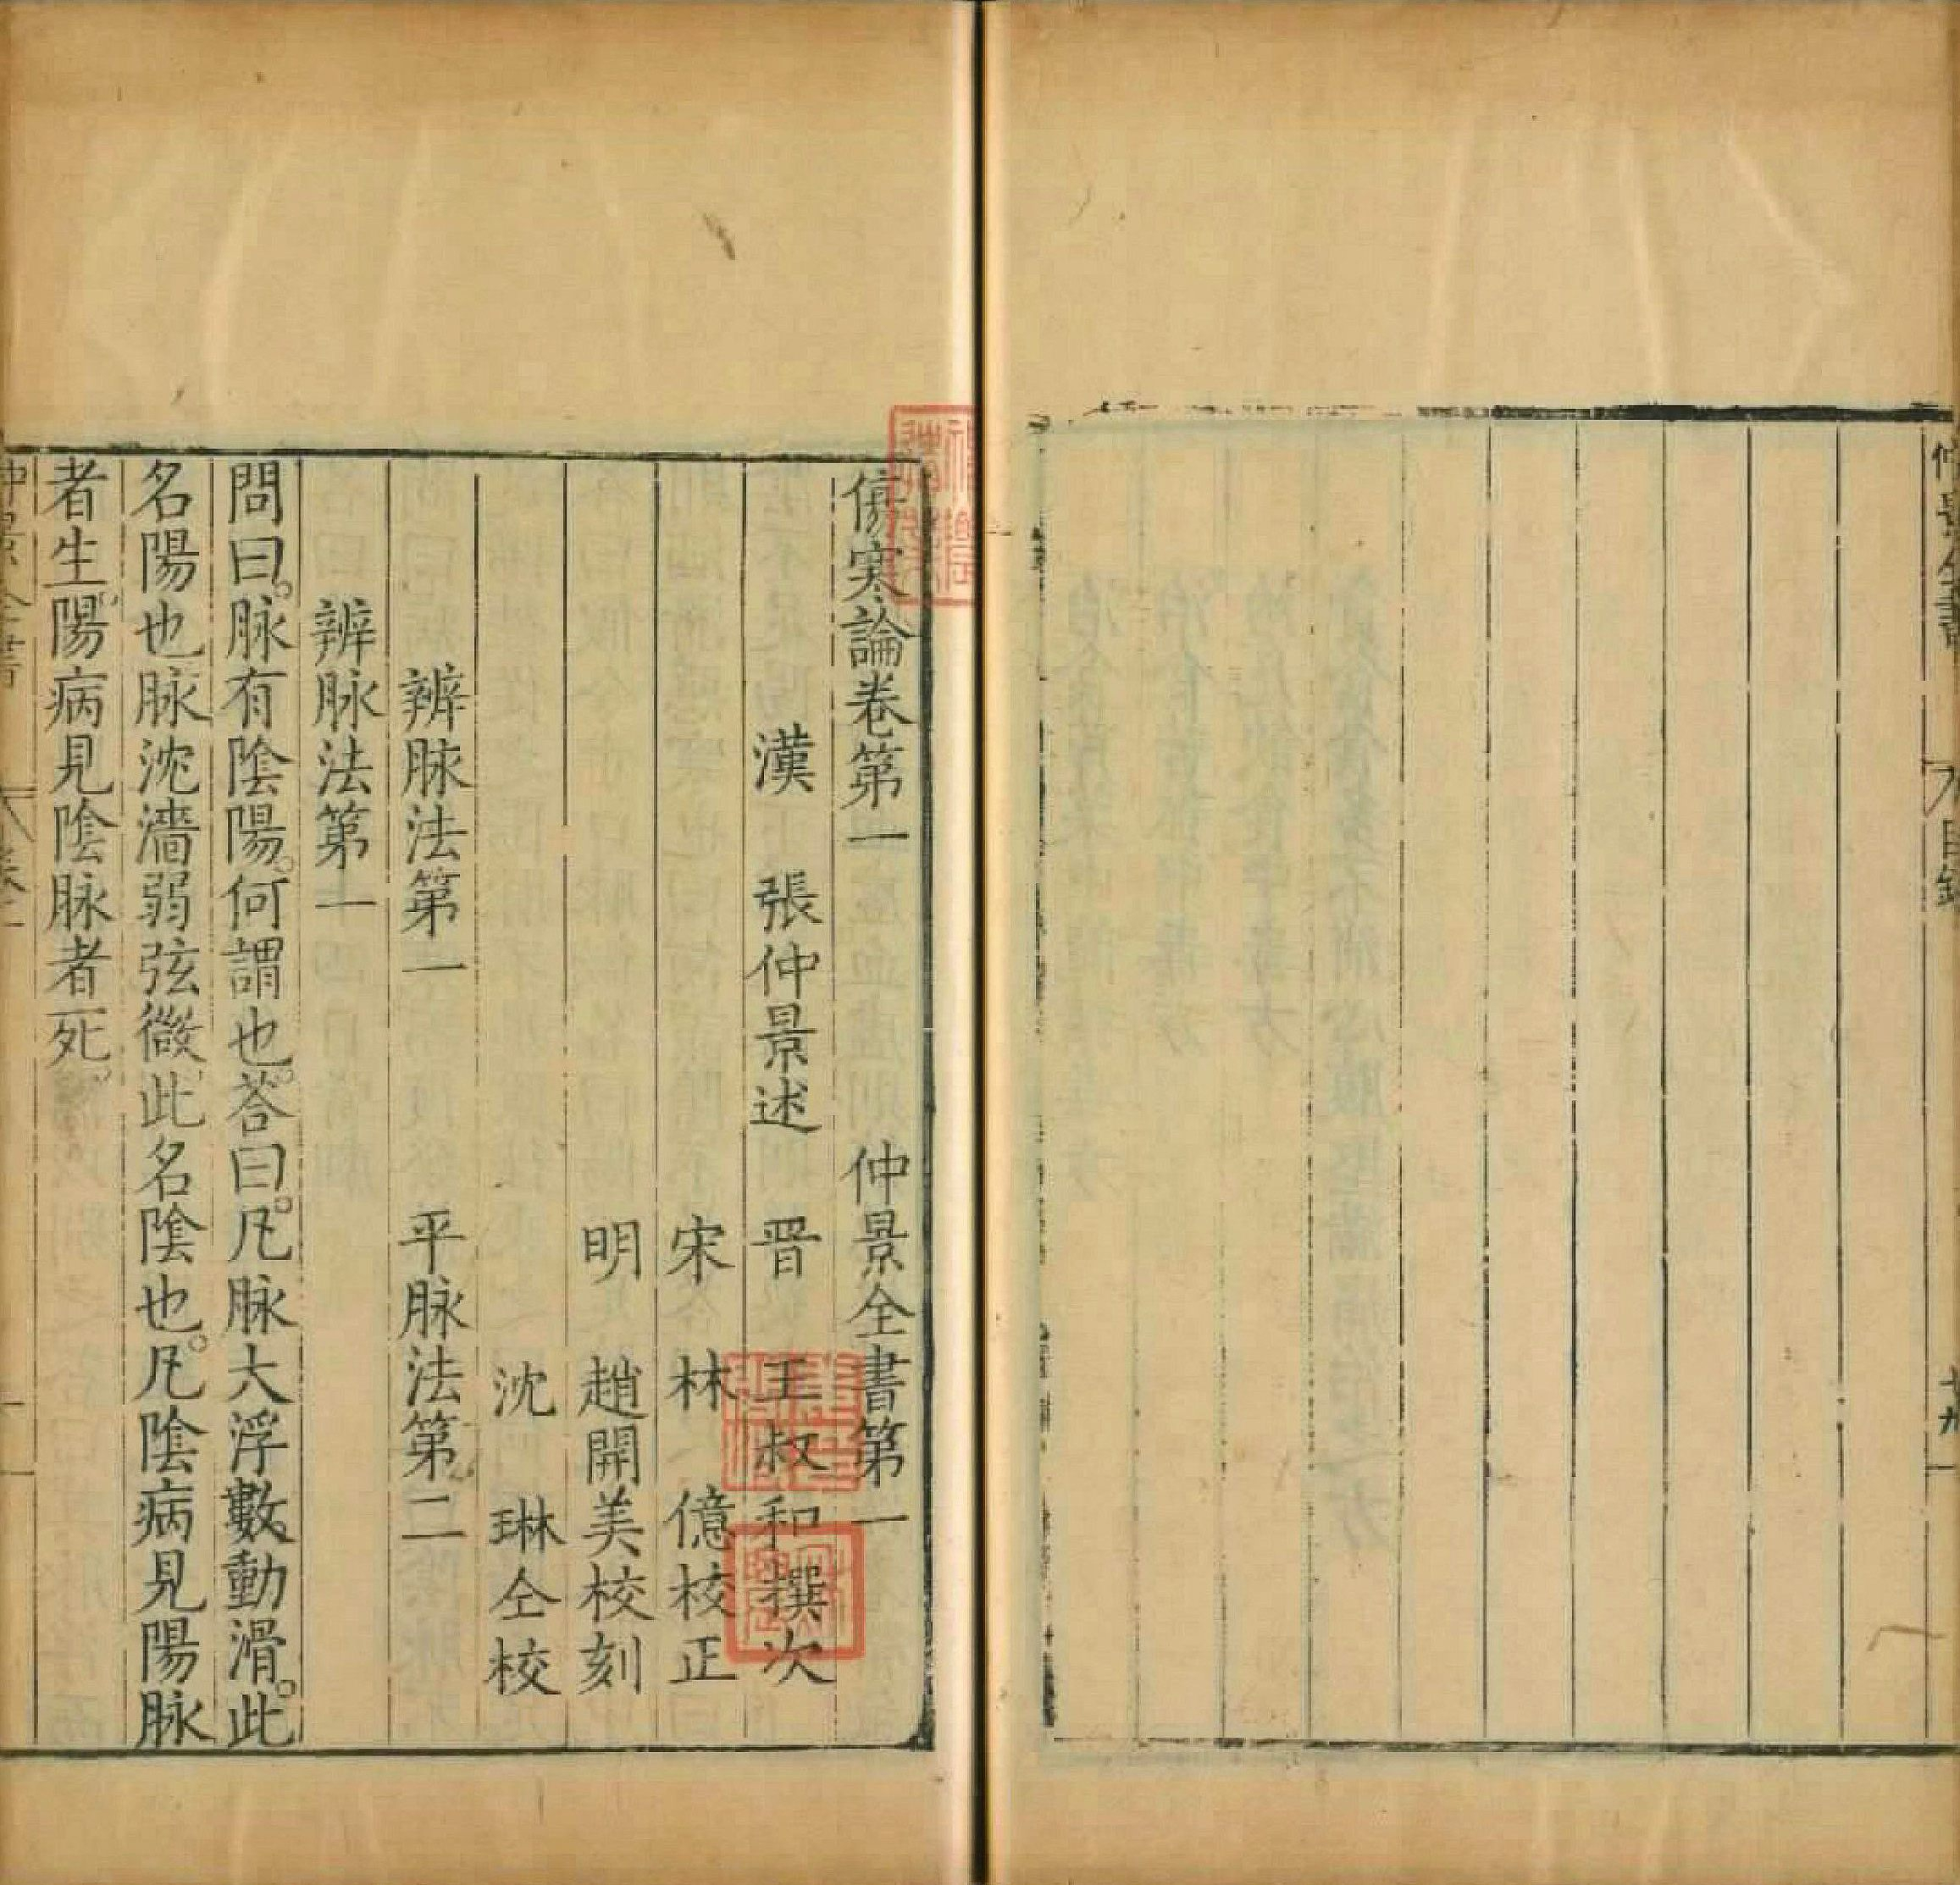 仲景全書 目錄 十九
傷寒論卷第一 仲景全書第一
漢 張仲景述 晋 王叔和撰次
宋 林 億校正
明 趙開美校刻
沈 琳仝校
辨脉法第一 平脉法第二
辨脉法第一
問曰。脉有陰陽。何謂也。荅曰。凡脉大浮數動滑。此
名陽也脉沈濇弱弦微此名陰也。凡陰病見陽脉
者生陽病見陰脉者死
仲景全書 卷一 一